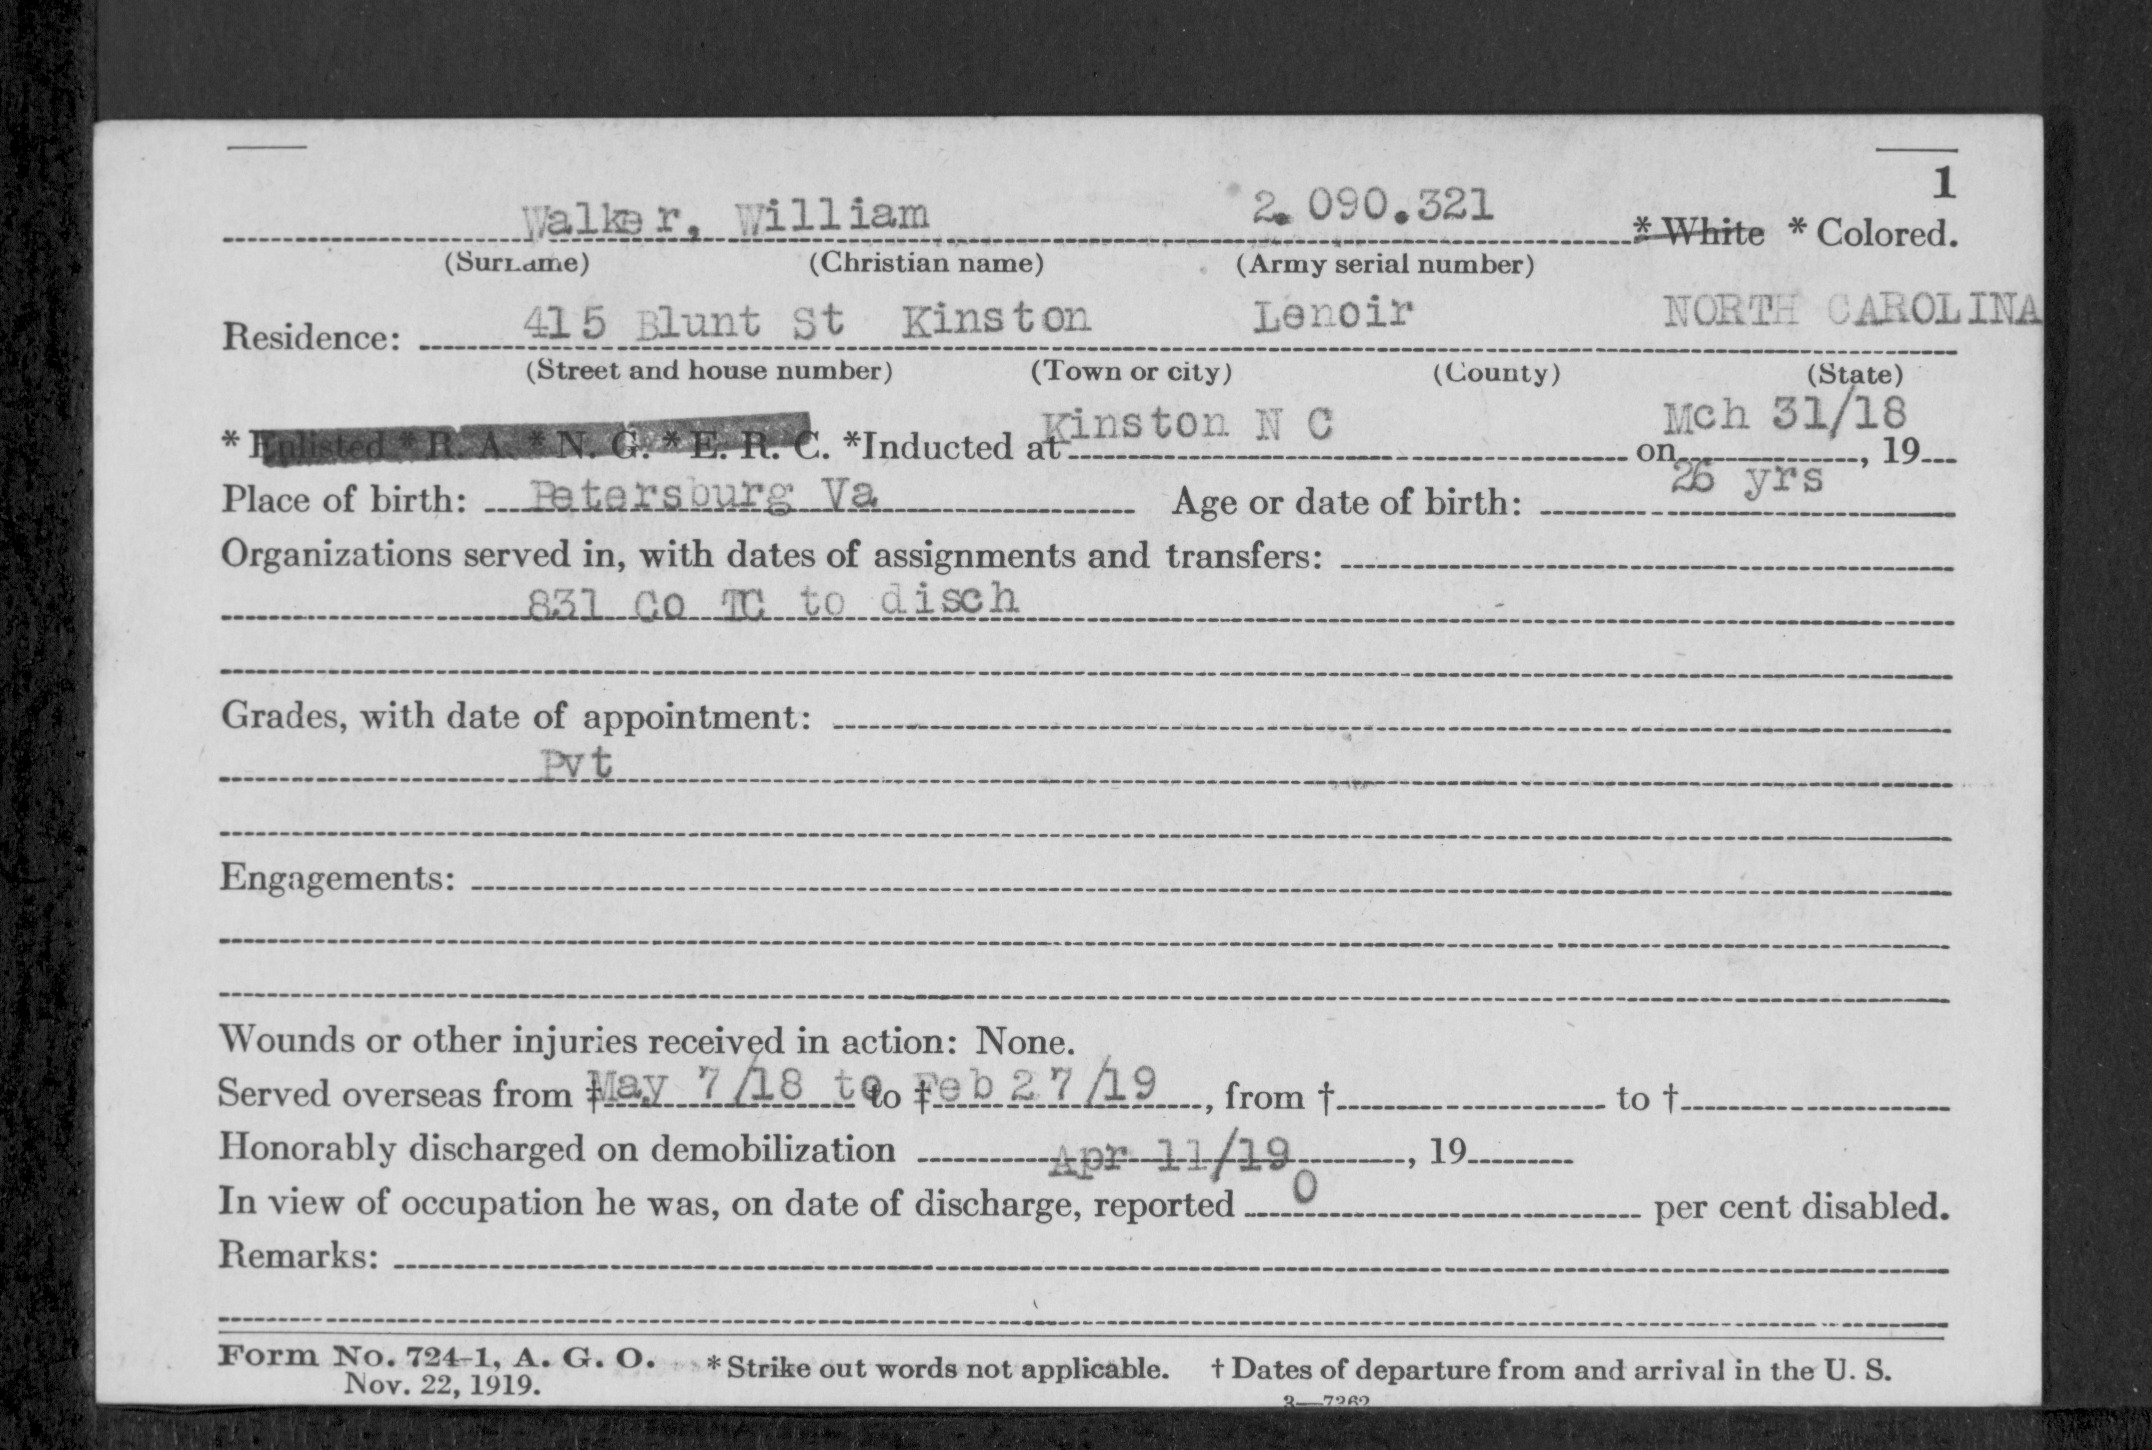 1
Walker, William 2.090.321 * White * Colored.
(Surname) (Christian name) (Army serial number)
Residence: 415 Blunt St Kinston Lenoir NORTH CAROLINA
(Street and house number) (Town or city) (County) (State)
* Enlisted * R. A. * N. G. * E. R. C. *Inducted at Kinston N C on Mch 31/18, 19
Place of birth: Petersburg Va Age or date of birth: 26 yrs
Organizations served in, with dates of assignments and transfers:
831 Co TC to disch
Grades, with date of appointment:
Pvt
Engagements:
Wounds or other injuries received in action: None.
Served overseas from † May 7/18 to to † Feb 27/19, from † to †
Honorably discharged on demobilization Apr 11/19, 19
In view of occupation he was, on date of discharge, reported 0 per cent disabled.
Remarks:
Form No. 724-1, A. G. O. * Strike out words not applicable. † Dates of departure from and arrival in the U. S.
Nov. 22, 1919.
3—7262